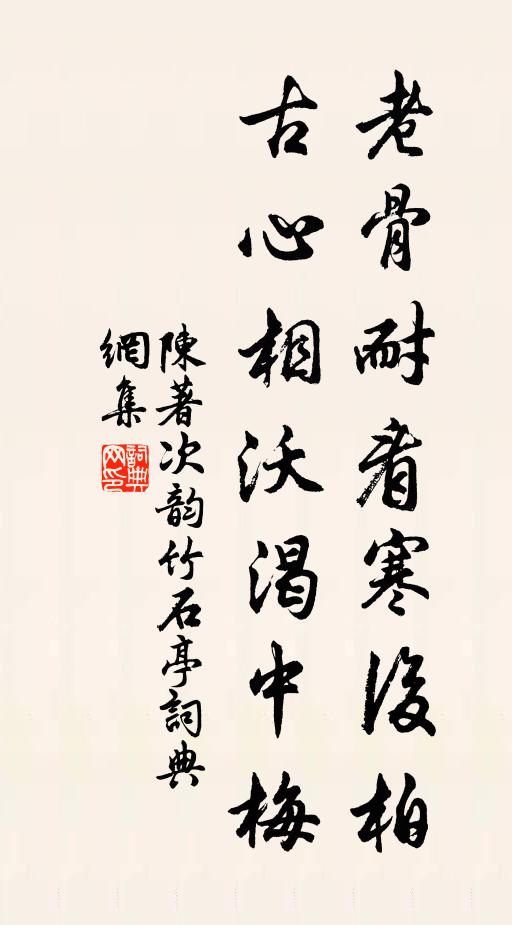 老骨耐看寒後柏
古心相沃渴中梅
陳著次韵竹石亭詞典
網集
詞典
网印